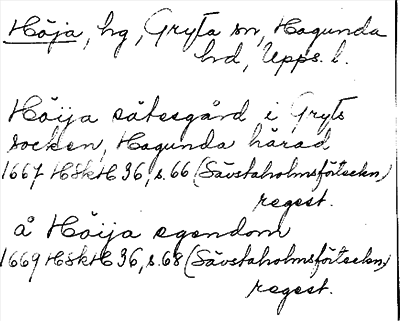 Höja, hg, Gryta sn, Hagunda
hd, Upps. l.
Höija sätesgård i Gryts
socken, Hagunda härad
1667 HSkH 36, s. 66 (Sävstaholmsförteckn.)
regest.
å Höija egendom
1669 HSkH 36, s. 68 (Sävstaholmsförteckn.)
regest.